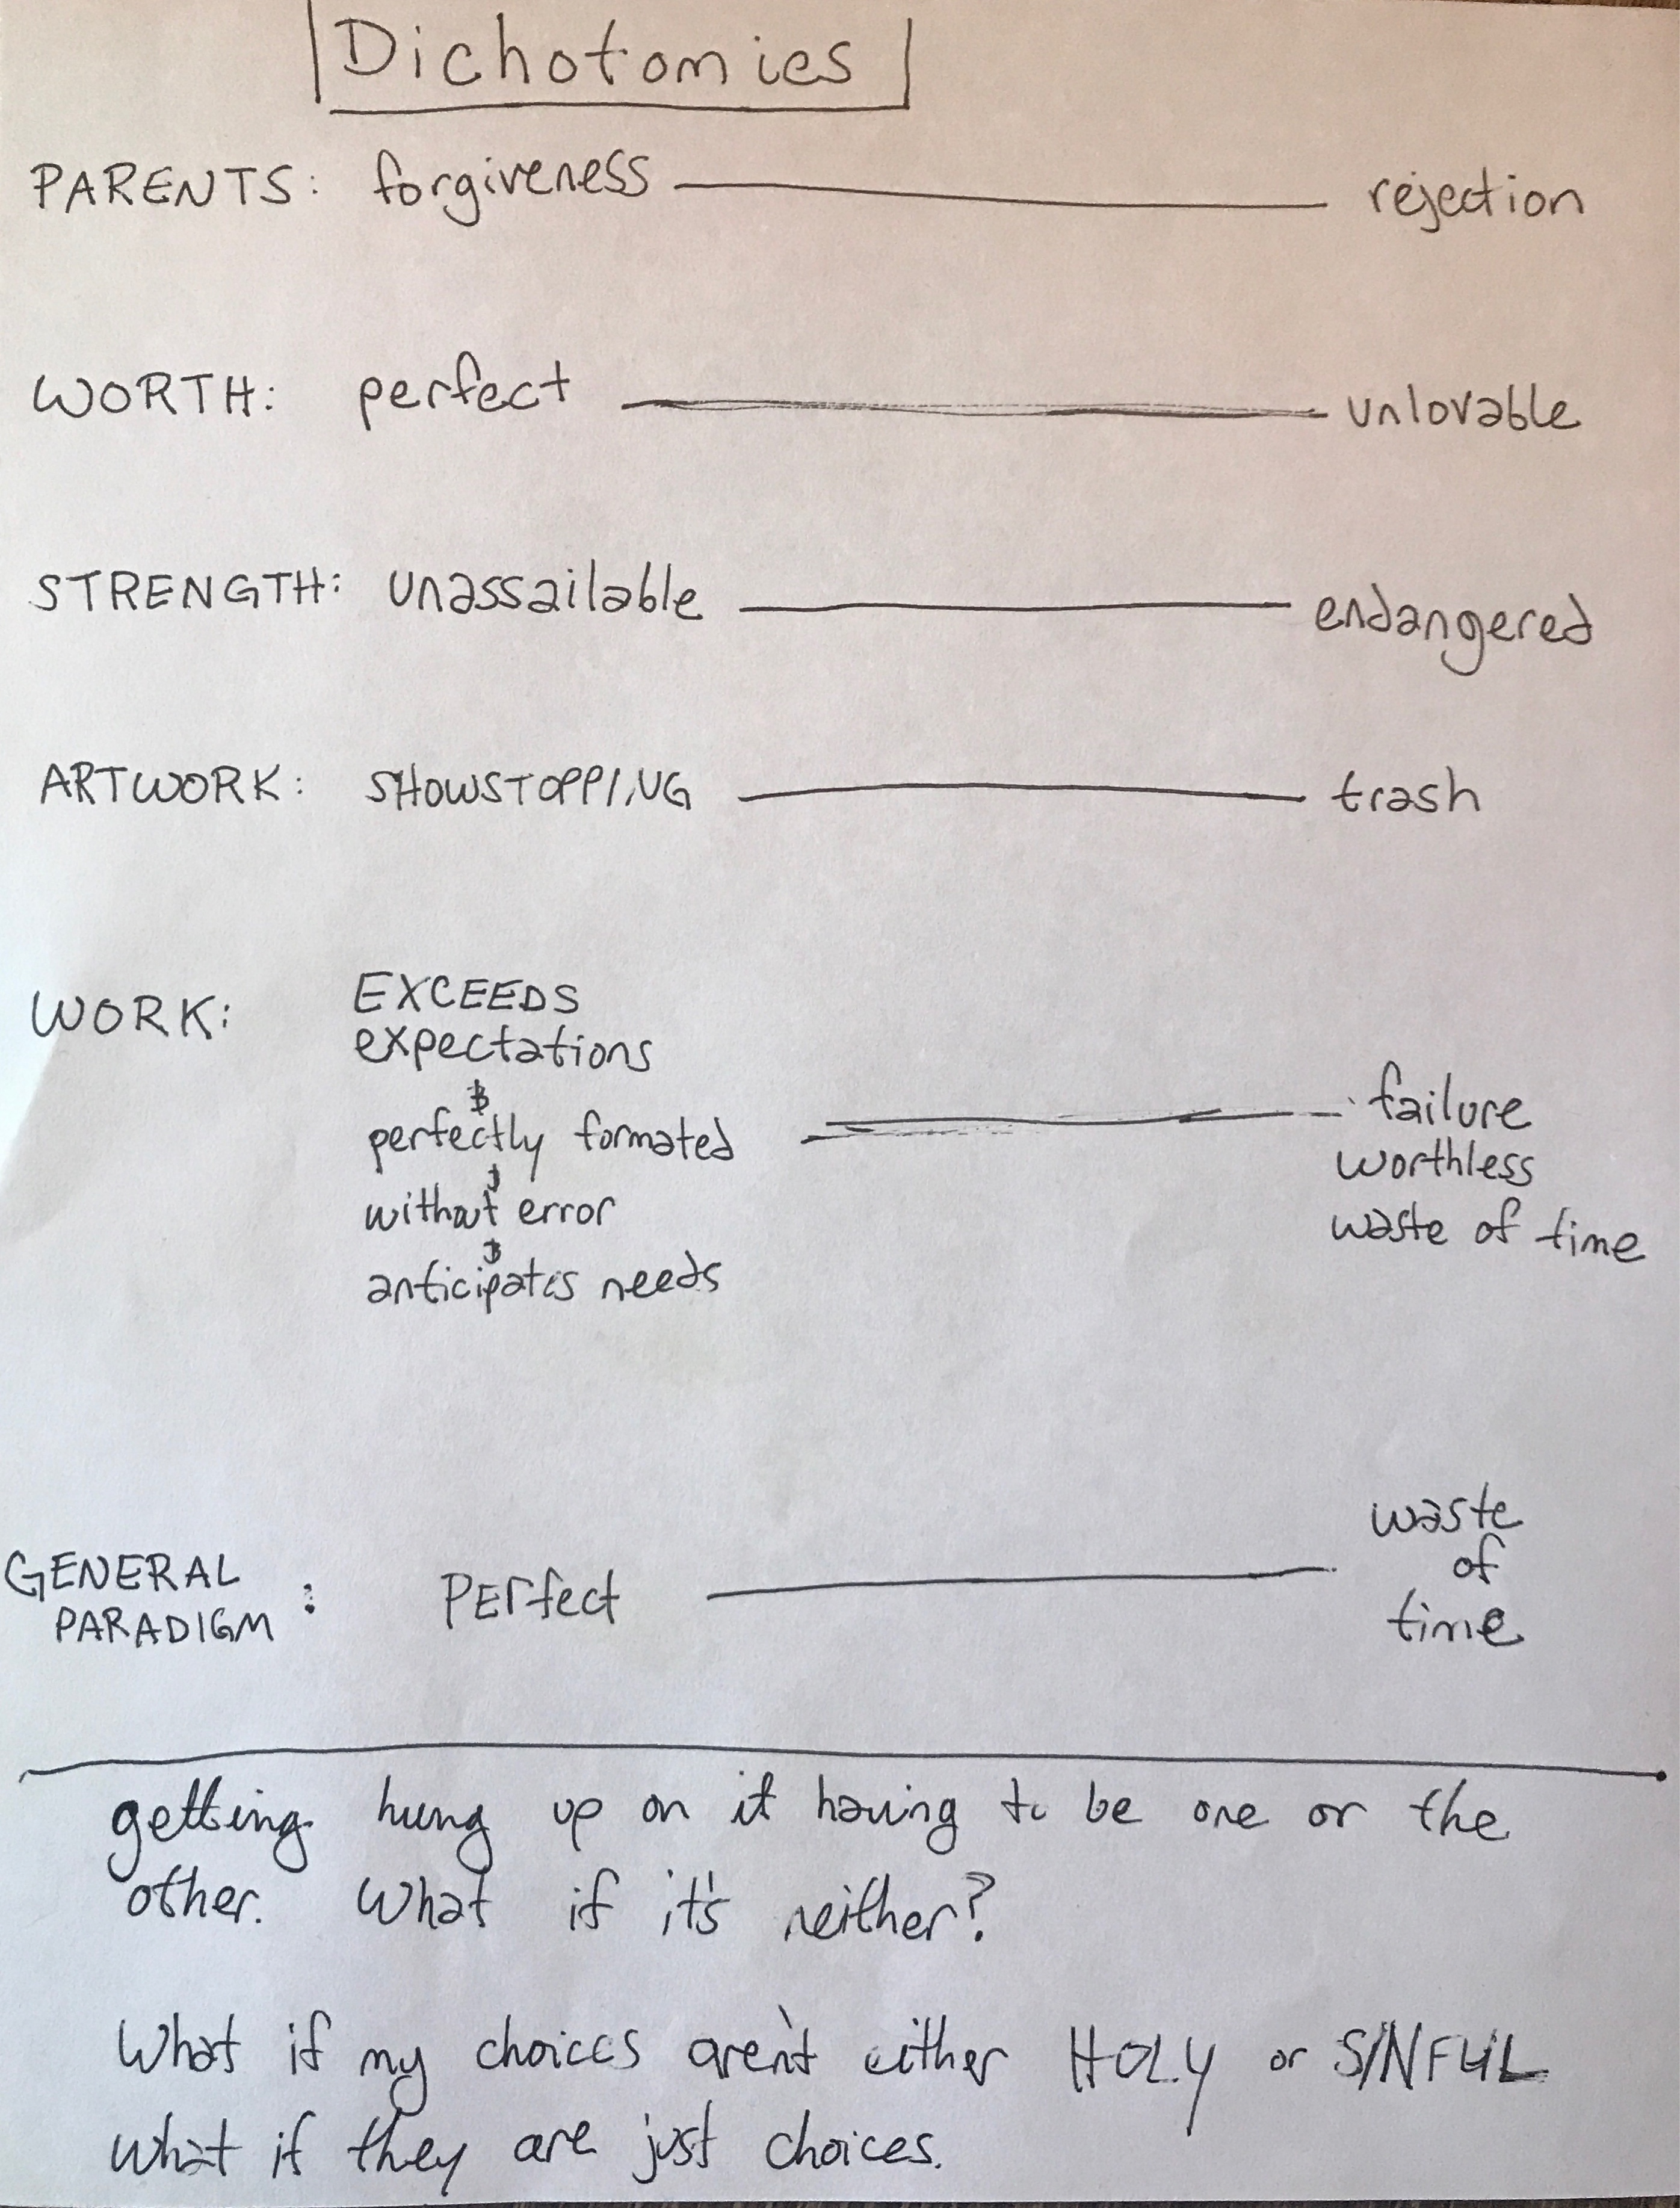 Dichotomies
PARENTS: forgiveness rejection
WORTH: perfect unlovable
STRENGTH: unassailable endangered
ARTWORK: SHOWSTOPPING trash
WORK: EXCEEDS
expectations
&
perfectly formated
&
without error
&
anticipates needs
failure
worthless
waste of time
GENERAL
PARADIGM: PERfect
waste
of
time
getting hung up on it having to be one or the
other. What if it's neither?
What if my choices aren't either HOLY or SINFUL
what if they are just choices.